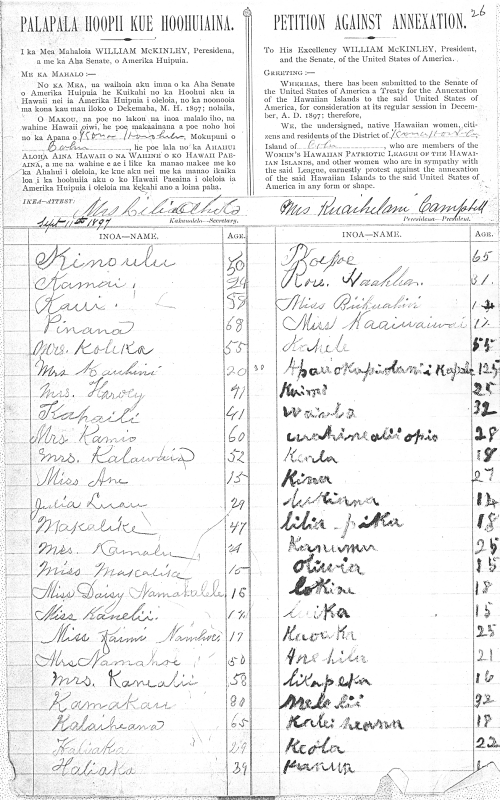 26
PALAPALA HOOPII KUE HOOHUIAINA.
I ka Mea Mahaloia WILLIAM McKINLEY, Peresidena,
a me ka Aha Senate, o Amerika Huipuia.
ME KA MAHALO :—
NO KA MEA, ua waihoia aku imua o ka Aha Senate
o Amerika Huipuia he Kuikahi no ka Hoohui aku ia
Hawaii nei ia Amerika Huipuia i oleloia, no ka noonooia
ma kona kau mau iloko o Dekemaba, M. H. 1897; nolaila,
O MAKOU, na poe no lakou na inoa malalo iho, na
wahine Hawaii piwi, he poe makaainana a poe noho hoi
no ka Apana o Kona Honolulu, Mokupuni o
Oahu, he poe lala no ka AHAHUI
ALOHA AINA HAWAII O NA WAHINE O KO HAWAII PAE-
AINA, a me na wahine e ae i like ka manao makee me ko
ka Ahahui i oleloia, ke kue aku nei me ka manao ikaika
loa i ka hoohuiia aku o ko Hawaii Paeaina i oleloia ia
Amerika Huipuia i oleloia ma kekahi ano a loina paha.
IKEA—ATTEST:
Sept 11th 1897
Mrs Lilia Aholo
Kakauolelo—Secretary.
INOA—NAME. AGE.
Kinoulu 50
Kamai. 29
Kaui.
Pinana 68
Mrs. Koleka 55
Mrs Kauhini 20
Mrs. Harvey 41
Kahaili 41
Mrs Kamio 60
Mrs. Kalawaia 52
Miss Ane 15
Julia Luau 29
Makalike 47
Mrs. Kamalu
Miss Makalika 15
Miss Daisy Namakalele 16
Miss Kanelii.
Miss Kaimi 17
Mrs Namahoe 50
Mrs. Kanealii 58
Kamakau 80
Kalaiheana 65
Haliaka 29
Haliaka 39
PETITION AGAINST ANNEXATION.
To His Excellency WILLIAM McKINLEY, President,
and the Senate, of the United States of America.
GREETING :—
WHEREAS, there has been submitted to the Senate of
the United States of America a Treaty for the Annexation
of the Hawaiian Islands to the said United States of
America, for consideration at its regular session in Decem-
ber, A. D. 1897; therefore,
WE, the undersigned, native Hawaiian women, citi-
zens and residents of the District of Kona, Honolulu
Island of Oahu, who are members of the
WOMEN'S HAWAIIAN PATRIOTIC LEAGUE OF THE HAWAI-
IAN ISLANDS, and other women who are in sympathy with
the said League, earnestly protest against the annexation
of the said Hawaiian Islands to the said United States of
America in any form or shape.
Mrs Kuaihelani Campbell
Peresidena—President.
INOA—NAME. AGE.
Poepoe 65
Mrs. 31
Miss
Miss Kaaiwaiwai
Kahele 55
30 125
Kaimi 25
Waiola 32
wahinealii opio 28
Keola 18
Kina 27
14
lilia pika 18
Kanunu 25
Olivia 15
lokine 18
15
Kaouka 25
Anehila 21
likapeka 16
32
Kaleiheana 18
Keola 22